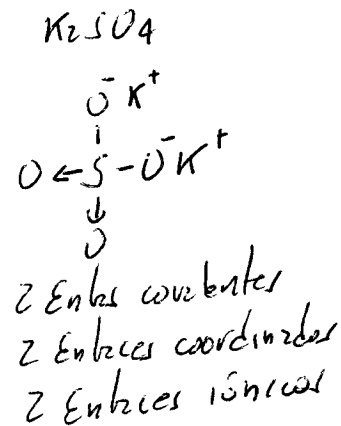 K2SO4
O⁻ K⁺
|
O ← S - O⁻ K⁺
↓
O
2 Enlces covalentes
2 Enlaces coordinados
2 Enlaces iónicos